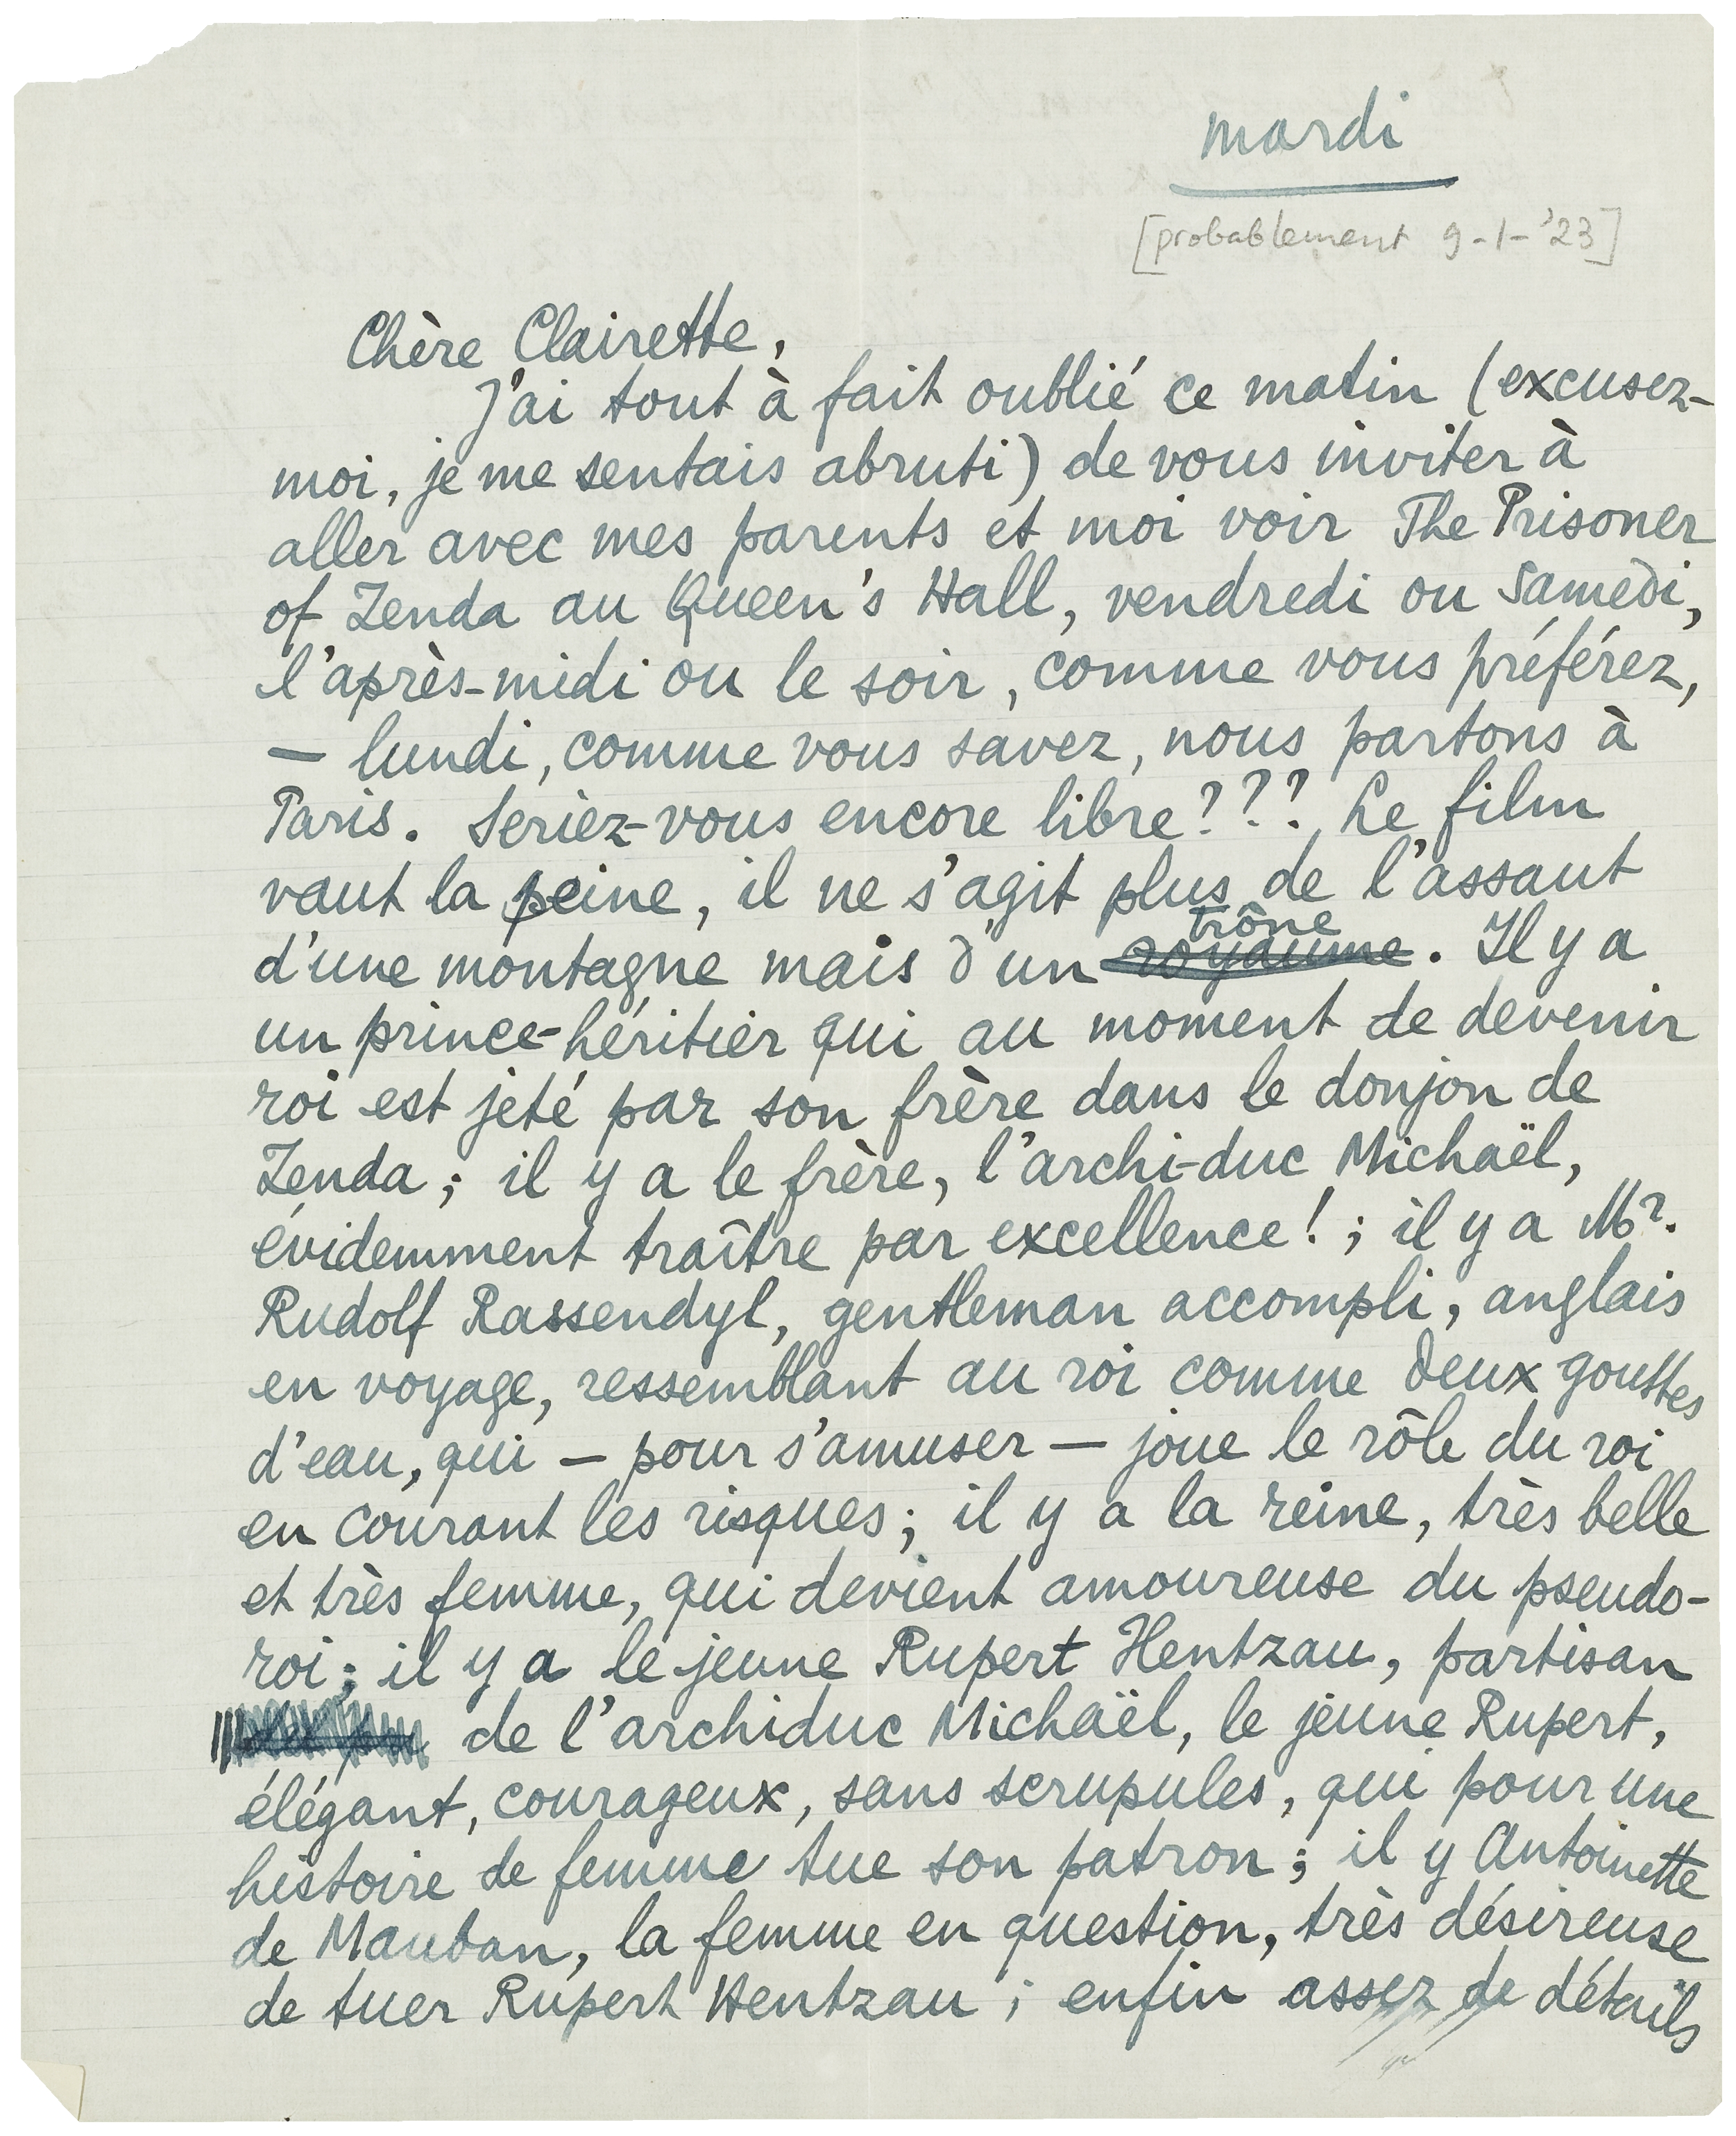 mardi
[probablement 9-1-'23]
Chère Clairette,
J'ai tout à fait oublié ce matin (excusez-
moi, je me sentais abruti) de vous inviter à
aller avec mes parents et moi voir The Prisoner
of Zenda au Queen's Hall, vendredi ou samedi,
l'après-midi ou le soir, comme vous préférez,
— lundi, comme vous savez, nous partons à
Paris. Seriez-vous encore libre??? Le film
vaut la peine, il ne s'agit plus de l'assaut
trône
d'une montagne mais d'un royaume. Il y a
un prince-héritier qui au moment de devenir
roi est jeté par son frère dans le donjon de
Zenda; il y a le frère, l'archi-duc Michaël,
évidemment traître par excellence!; il y a Mr.
Rudolf Rassendyl, gentleman accompli, anglais
en voyage, ressemblant au roi comme deux gouttes
d'eau, qui — pour s'amuser — joue le rôle du roi
en courant les risques; il y a la reine, très belle
et très femme, qui devient amoureuse du pseudo-
roi; il y a le jeune Rupert Hentzau, partisan
de l'archiduc Michaël, le jeune Rupert,
élégant, courageux, sans scrupules, qui pour une
histoire de femme tue son patron; il y Antoinette
de Mauban, la femme en question, très désireuse
de tuer Rupert Hentzau; enfin assez de détails